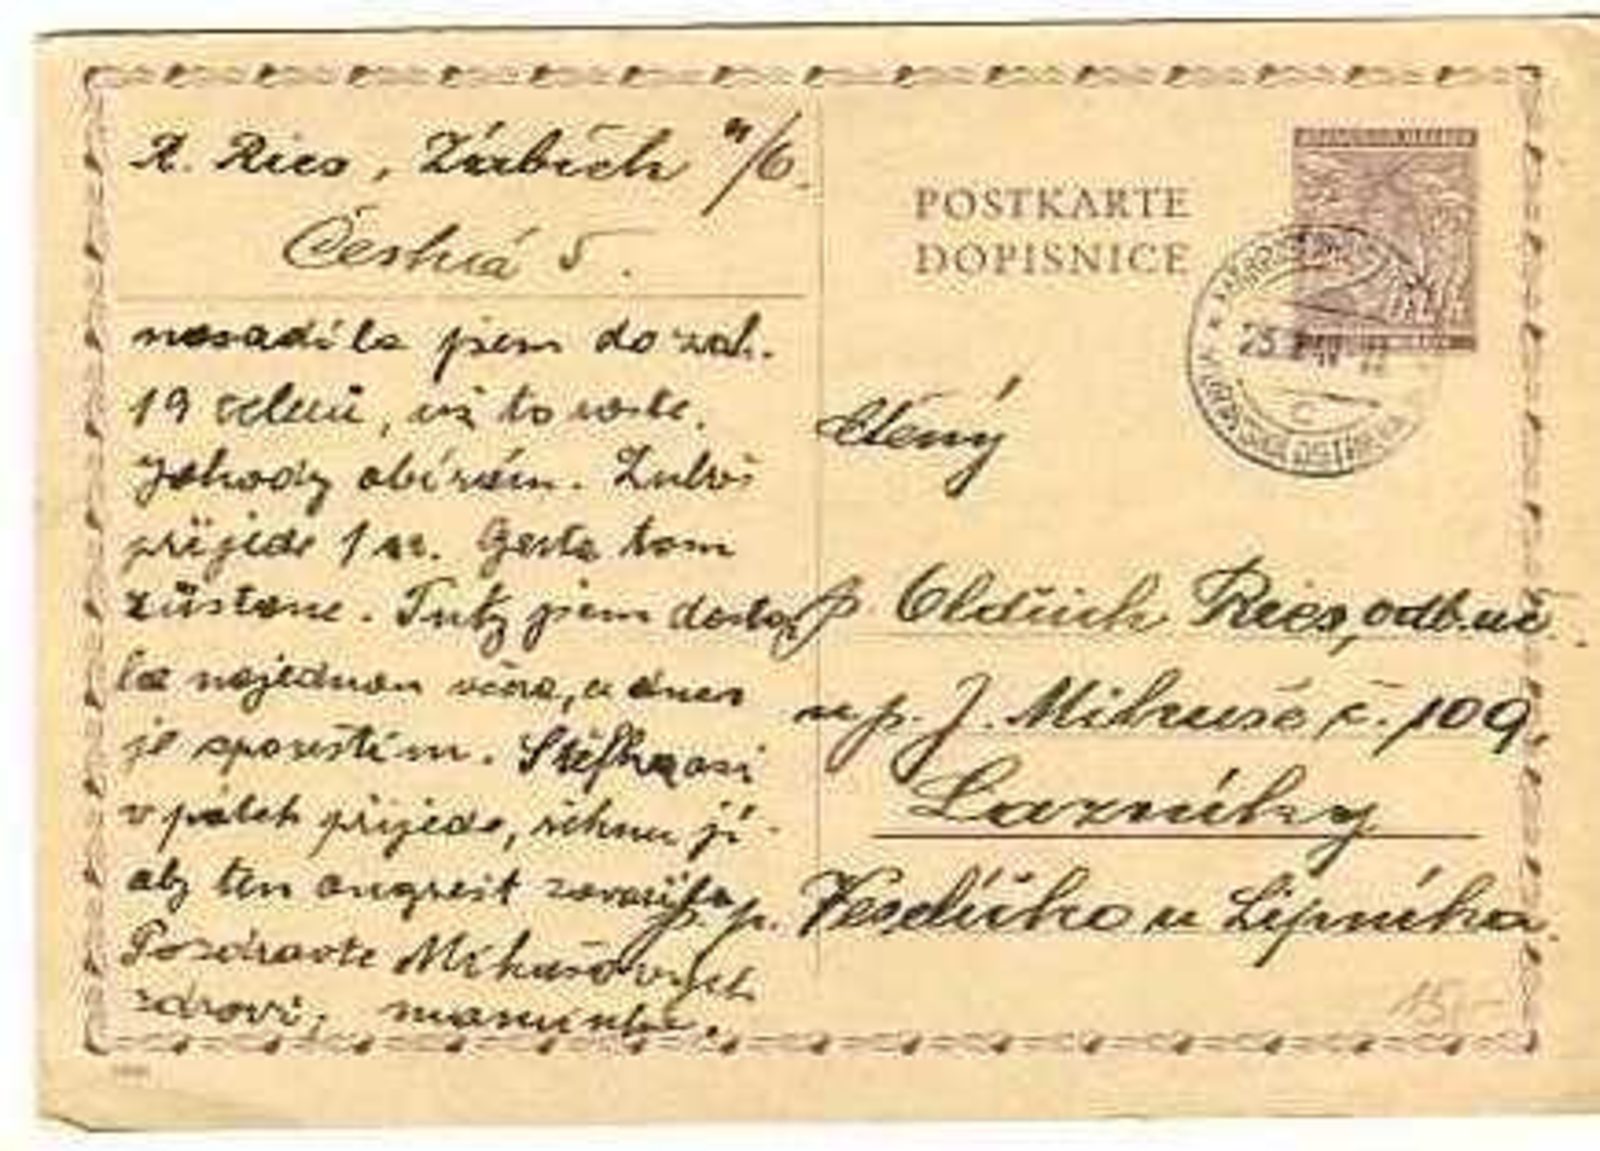 R. Ries, Zábřeh n/O.
Česká 5.
nasadila jsem do zah.
19 zelnů, už to roste.
Jahody obírám. Luboš
přijede 1 Gerta tam
zůstane. Tuky jsem dosta
la najednou včera, a dnes
je spouštím. Štěfka asi
v pátek přijede, řeknu jí
aby ten angrešt zavařila
Pozdravte Mikušových
zdraví, maminka.
POSTKARTE
DOPISNICE
MORAVSKÁ OSTRAVA
25
C
Ctěný
p. Oldřich Ries, odb. uč.
u p. J. Mikuše č. 109,
Lazníky
p. p. Veselíčko u Lipníka.
15,-